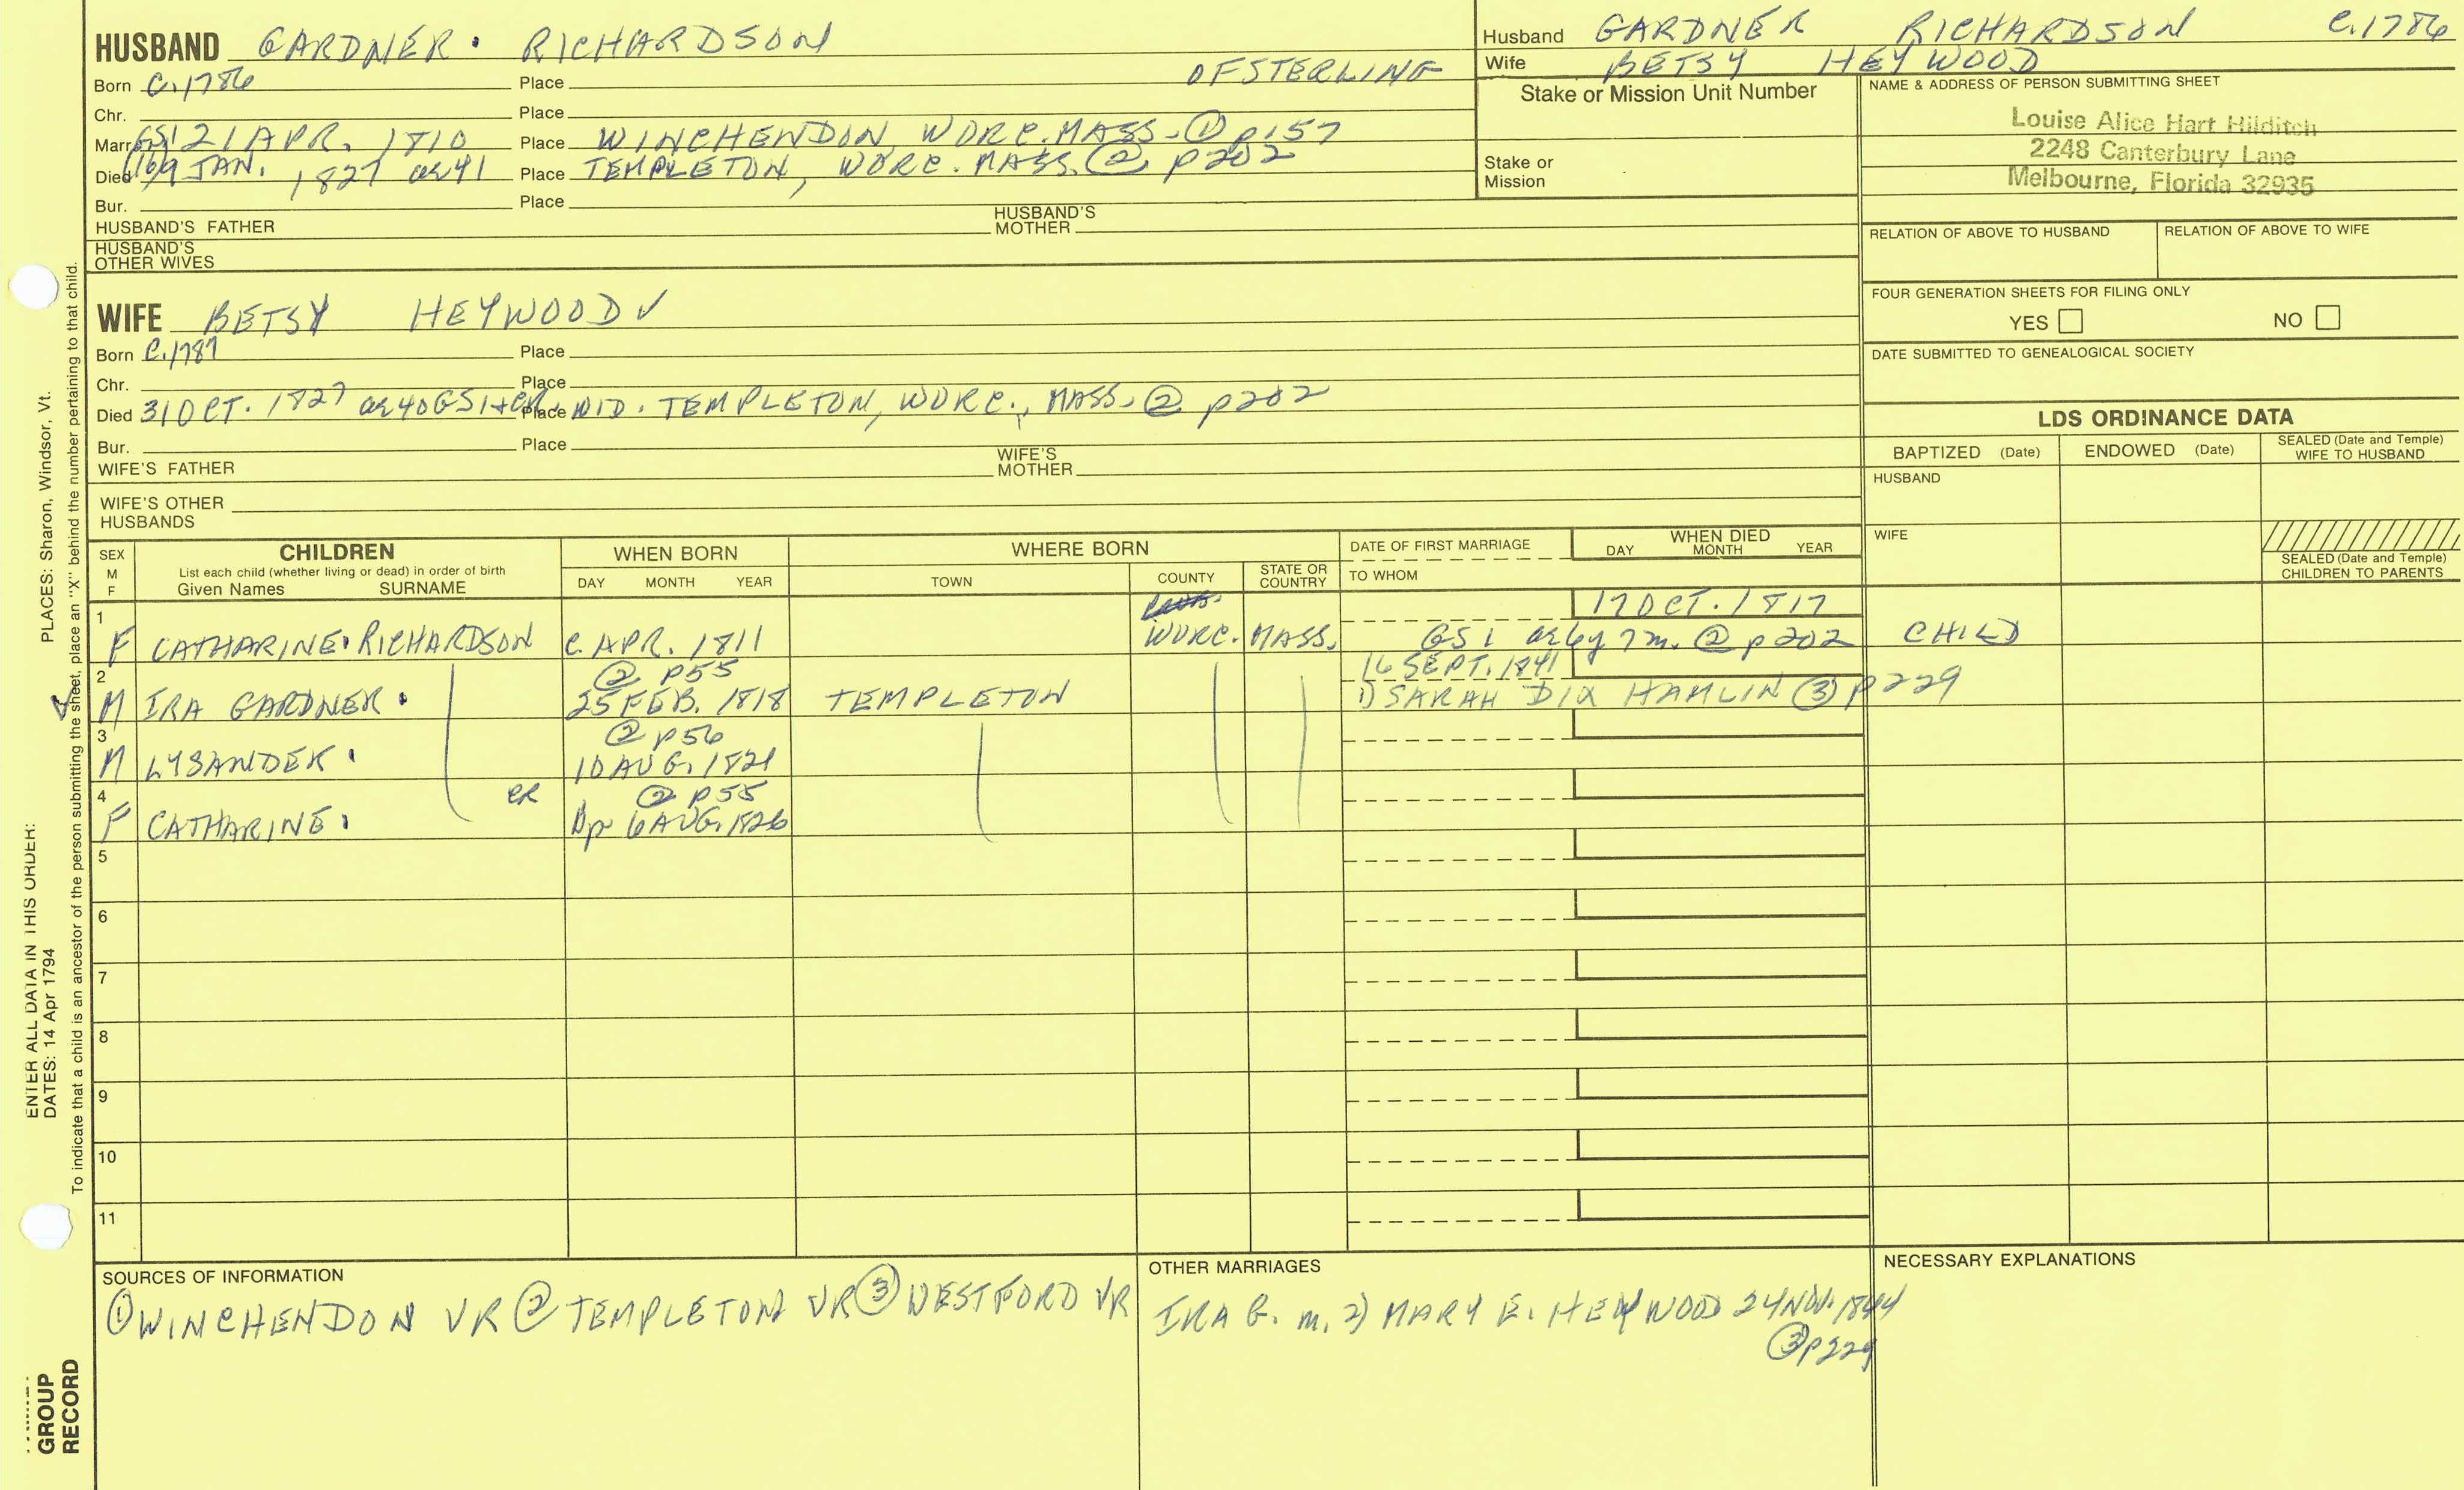 HUSBAND GARDNER · RICHARDSON
OF STERLING
Born C.1786 Place
Chr. Place
Marr. GSI 21 APR. 1810 Place WINCHENDON, WORC. MASS. ① p157
Died 19 JAN. 1827 ae41 Place TEMPLETON, WORC. MASS. ② p202
Bur. Place
HUSBAND'S FATHER HUSBAND'S MOTHER
HUSBAND'S OTHER WIVES
Husband GARDNER RICHARDSON C.1786
Wife BETSY HEYWOOD
Stake or Mission Unit Number
Stake or Mission
NAME & ADDRESS OF PERSON SUBMITTING SHEET
Louise Alice Hart Hilditch
2248 Canterbury Lane
Melbourne, Florida 32935
RELATION OF ABOVE TO HUSBAND RELATION OF ABOVE TO WIFE
FOUR GENERATION SHEETS FOR FILING ONLY
YES NO
DATE SUBMITTED TO GENEALOGICAL SOCIETY
WIFE BETSY HEYWOOD ✓
Born C.1787 Place
Chr. Place
Died 31 OCT. 1827 ae40 GSI+CR Place WID. TEMPLETON, WORC., MASS. ② p202
Bur. Place
WIFE'S FATHER WIFE'S MOTHER
WIFE'S OTHER HUSBANDS
LDS ORDINANCE DATA
BAPTIZED (Date) ENDOWED (Date) SEALED (Date and Temple) WIFE TO HUSBAND
HUSBAND
WIFE
SEALED (Date and Temple) CHILDREN TO PARENTS
SEX M F
CHILDREN
List each child (whether living or dead) in order of birth
Given Names SURNAME
WHEN BORN
DAY MONTH YEAR
WHERE BORN
TOWN COUNTY STATE OR COUNTRY
DATE OF FIRST MARRIAGE
TO WHOM
WHEN DIED
DAY MONTH YEAR
1 17 OCT. 1817
F CATHARINE · RICHARDSON C. APR. 1811 WORC. MASS. GSI ae 6y 7m. ② p202 CHILD
2 ② p55 16 SEPT. 1841
M IRA GARDNER · 25 FEB. 1818 TEMPLETON 1) SARAH DIX HAMLIN ③ p229
3 ② p56
M LYSANDER · 10 AUG. 1821
4 CR ② p55
F CATHARINE · bp 6 AUG. 1826
5
6
7
8
9
10
11
SOURCES OF INFORMATION
① WINCHENDON VR ② TEMPLETON VR ③ WESTFORD VR
OTHER MARRIAGES
IRA G. m. 2) MARY E. HEYWOOD 24 NOV. 1844
③ p229
NECESSARY EXPLANATIONS
ENTER ALL DATA IN THIS ORDER:
DATES: 14 Apr 1794 PLACES: Sharon, Windsor, Vt.
To indicate that a child is an ancestor of the person submitting the sheet, place an "X" behind the number pertaining to that child.
GROUP
RECORD